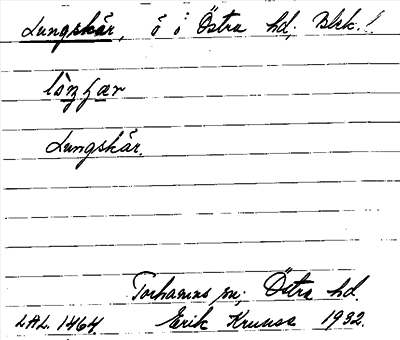 Lungskär, ö i Östra hd, Blek.!
Lungskär.
Torhamns sn; Östra hd.
LAL. 1464. Erik Kruuse 1932.